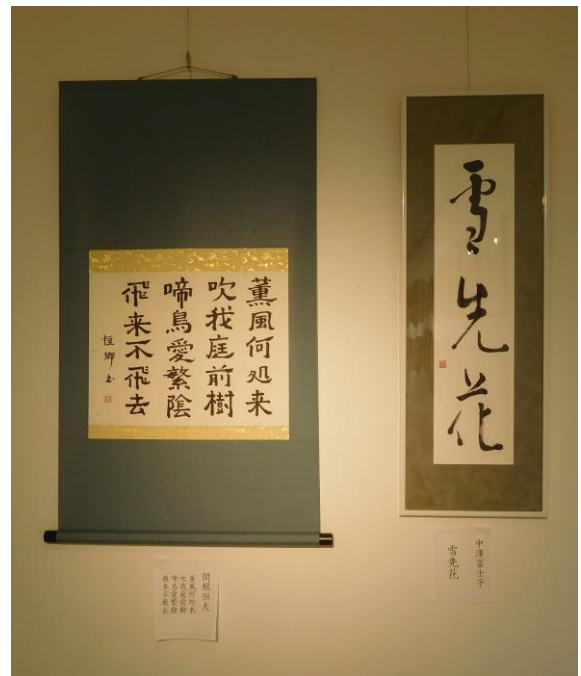 薫風何処来
吹我庭前樹
啼鳥愛繁陰
飛来不飛去
関根恒夫
薫風何処来
吹我庭前樹
啼鳥愛繁陰
飛来不飛去
雪先花
中澤冨士子
雪先花